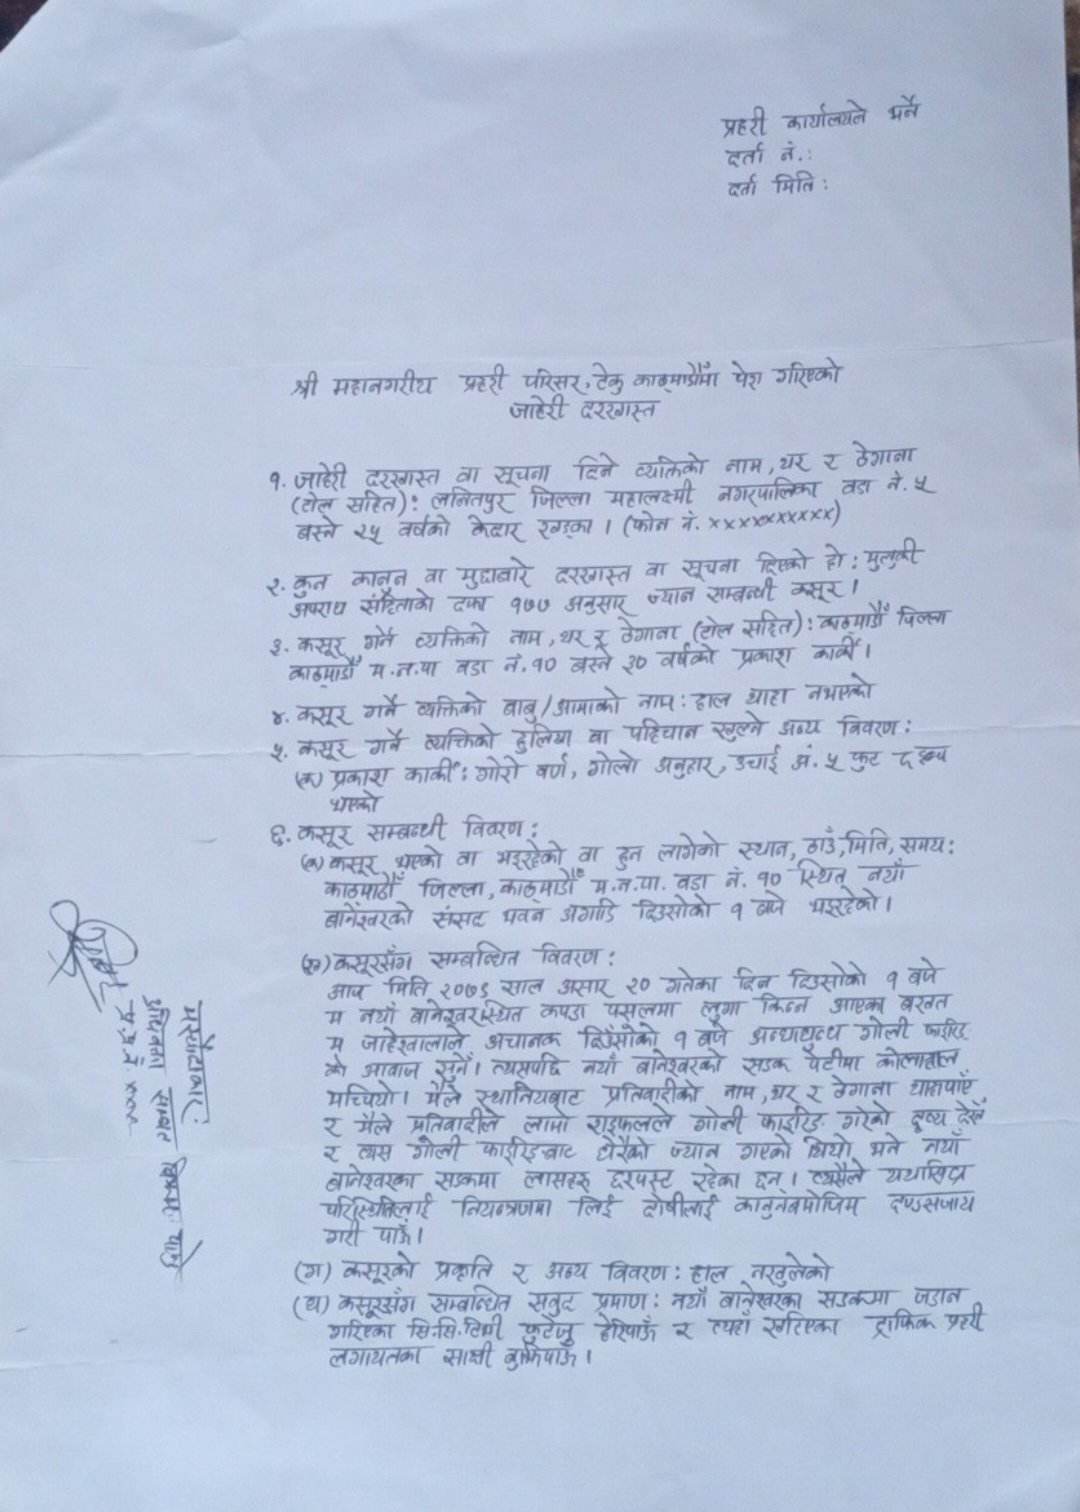 प्रहरी कार्यालयले भर्ने
दर्ता नं.:
दर्ता मिति:
श्री महानगरीय प्रहरी परिसर, टेकु काठमाडौँमा पेश गरिएको
जाहेरी दरखास्त
१. जाहेरी दरखास्त वा सूचना दिने व्यक्तिको नाम, थर र ठेगाना
(टोल सहित): ललितपुर जिल्ला महालक्ष्मी नगरपालिका वडा नं. ५
बस्ने २५ वर्षको केदार खड्का । (फोन नं. xxxxxxxxxx)
२. कुन कानून वा मुद्दाबारे दरखास्त वा सूचना दिएको हो: मुलुकी
अपराध संहिताको दफा १७७ अनुसार ज्यान सम्बन्धी कसूर ।
३. कसूर गर्ने व्यक्तिको नाम, थर र ठेगाना (टोल सहित): काठमाडौँ जिल्ला
काठमाडौँ म.न.पा वडा नं. १० बस्ने ३० वर्षको प्रकाश कार्की ।
४. कसूर गर्ने व्यक्तिको बाबु/आमाको नाम: हाल थाहा नभएको
५. कसूर गर्ने व्यक्तिको हुलिया वा पहिचान खुल्ने अन्य विवरण:
(क) प्रकाश कार्की: गोरो वर्ण, गोलो अनुहार, उचाई अं. ५ फुट ८ इन्च
भएको
६. कसूर सम्बन्धी विवरण:
(क) कसूर भएको वा भइरहेको वा हुन लागेको स्थान, ठाउँ, मिति, समय:
काठमाडौँ जिल्ला, काठमाडौँ म.न.पा. वडा नं. १० स्थित नयाँ
बानेश्वरको संसद भवन अगाडि दिउसोको १ बजे भइरहेको ।
(ख) कसूरसँग सम्बन्धित विवरण:
आज मिति २०७६ साल असार २० गतेका दिन दिउसोको १ बजे
म नयाँ बानेश्वरस्थित कपडा पसलमा लुगा किन्न आएका बखत
म जाहेरवालाले अचानक दिउँसोको १ बजे अन्धाधुन्ध गोली फाइरिङ
को आवाज सुनेँ । त्यसपछि नयाँ बानेश्वरको सडक पेटीमा कोलाहाल
मच्चियो । मैले स्थानियबाट प्रतिवादीको नाम, थर र ठेगाना थाहापाएँ
र मैले प्रतिवादीले लामो राइफलले गोली फाइरिङ गरेको दृष्य देखेँ
र त्यस गोली फाइरिङबाट धेरैको ज्यान गएको थियो भने नयाँ
बानेश्वरका सडकमा लासहरु छरपस्ट रहेका छन् । त्यसैले यथासिघ्र
परिस्थितिलाई नियन्त्रणमा लिई दोषीलाई कानुनबमोजिम दण्डसजाय
गरी पाऊँ ।
(ग) कसूरको प्रकृति र अन्य विवरण: हाल नखुलेको
(घ) कसूरसँग सम्बन्धित सबुद प्रमाण: नयाँ बानेश्वरका सडकमा जडान
गरिएका सि.सि.टिभी फुटेज हेरिपाऊँ र त्यहाँ खटिएका ट्राफिक प्रहरी
लगायतका साक्षी बुझिपाऊँ ।